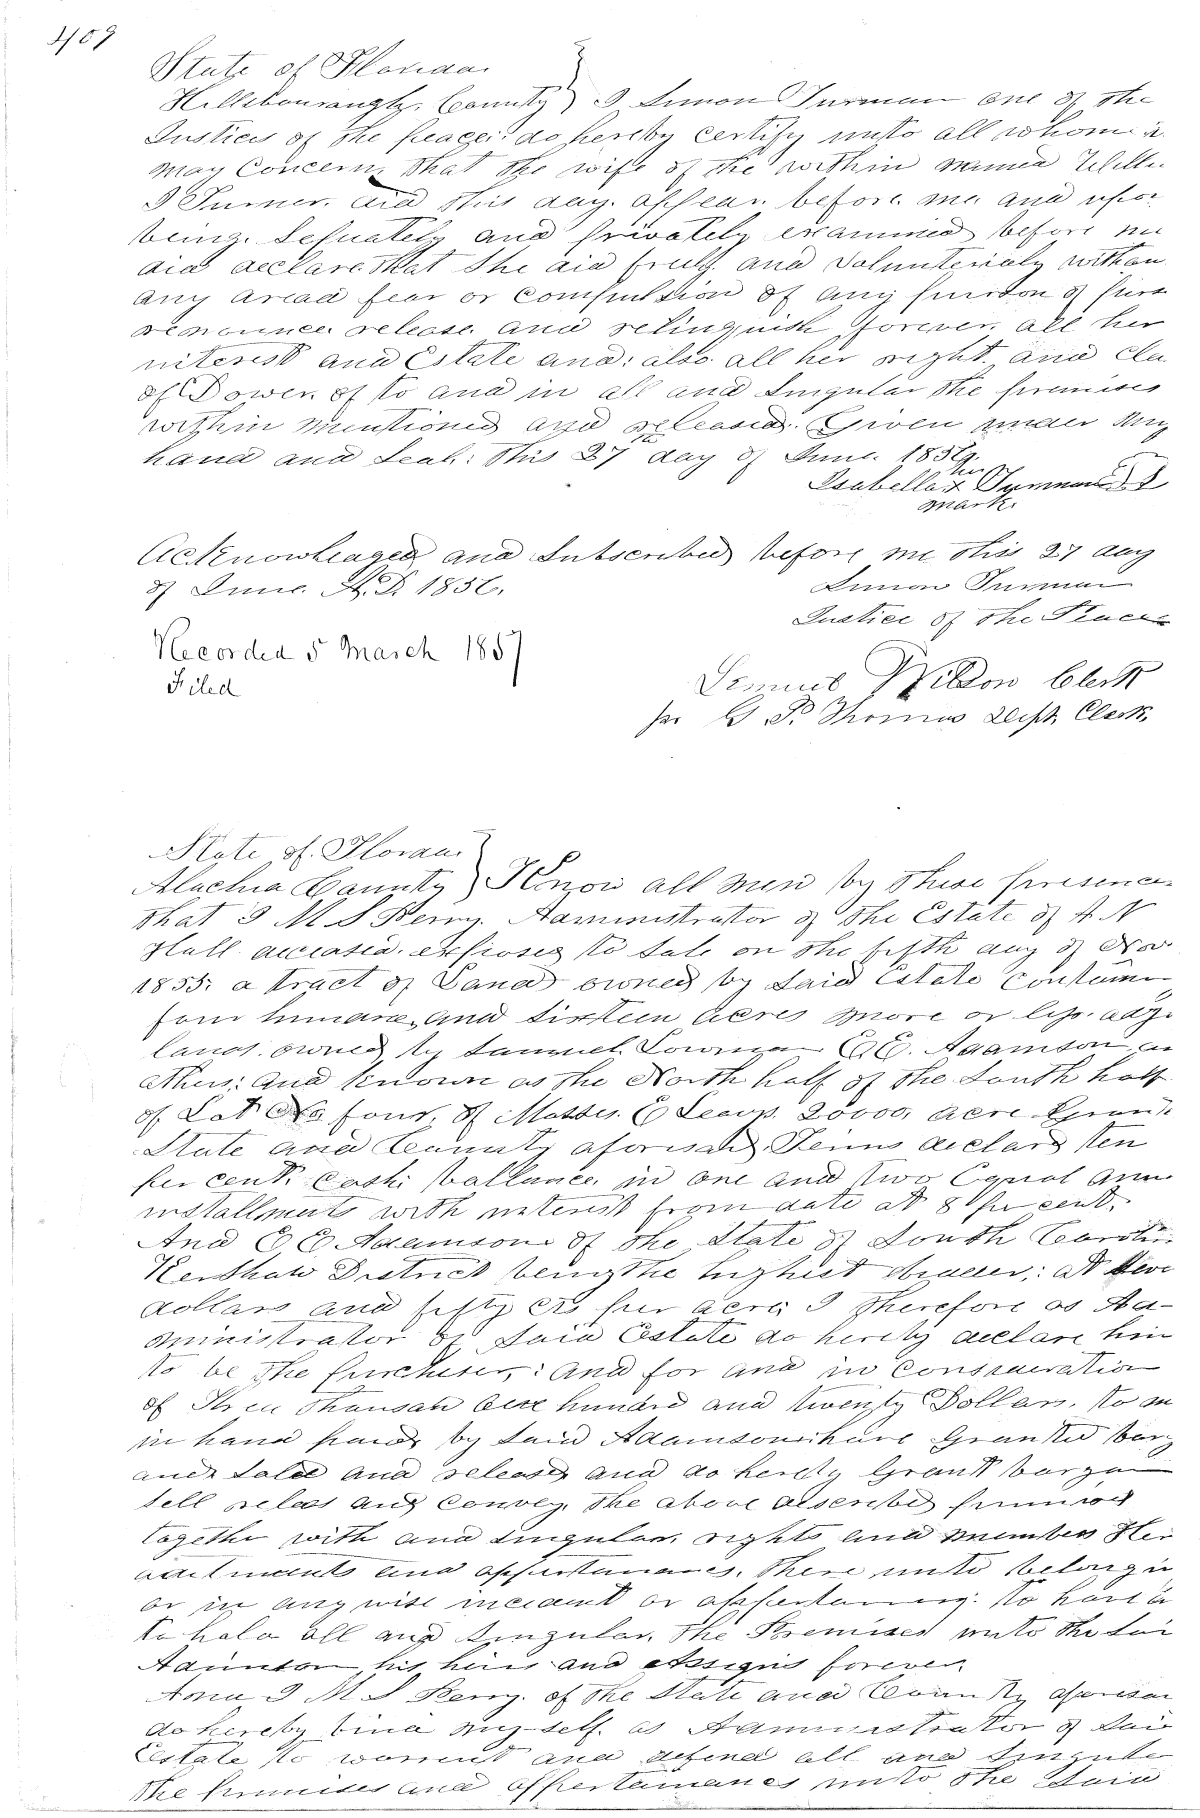 409
State of Florida
Hillsbourough County } I Simon Turman one of the
Justices of the peace do hereby certify unto all whom it
may Concern, that the wife of the within named
J Turner did this day appear before me and upon
being Seperately and privately examined before me
did declare that She did freely and Volunterialy without
any dread fear or compultion of any
renounce release and relinquish forever all her
interest and Estate and also all her right and Cla
of Dower of to and in all and Singular the premises
within mentioned and released. Given under my
hand and Seal this 27th day of June 1856.
her
Isabella x
mark
Acknowleaged and Subscribed before me this 27 day
of June A.D. 1856.
Simon Turman
Justice of the Peace
Recorded 5 March 1857
Filed
Samuel Wilson Clerk
per G. P. Thomas Dept. Clerk
State of Florida }
Alachua County } Know all men by these presence
that I M S Perry Administrator of the Estate of A N
Hall deceased exposed to Sale on the fifth day of Nov
1855 a tract of Land owned by Said Estate contain
four hundred and Sixteen acres more or less adj.
lands owned by Samuel E E. Adamson an
others and known as the North half of the South half
of Lot No four, of 20000 acre Grant
State and County aforesaid Terms declard ten
per cent Cash ballance in one and two Equal ann
installments with interest from date at 8 per cent.
And E E Adamson of the State of South Carolin
Kershaw District being the highest bidder at
dollars and fifty cts per acre I therefore as Ad-
ministrator of Said Estate do hereby declare him
to be the purcheser, and for and in consideration
of Three Thousan one hundred and twenty Dollars to m
in hand paid by Said Adamson have Granted barg
and Salee and released and do hereby Grant bargain
sell releas and convey the above described premises
together with and singular rights and members Her
aditments and appurtanances there unto belongin
or in any wise incident or appertaining to have a
to hold all and Singular the Premises unto the Sai
Adamson his heirs and Assigns forever.
And I M S Perry of the State and County aforesai
do hereby bind my-self as Administrator of Said
Estate to warrent and defend all and Singular
the premises and appertamances unto the Said